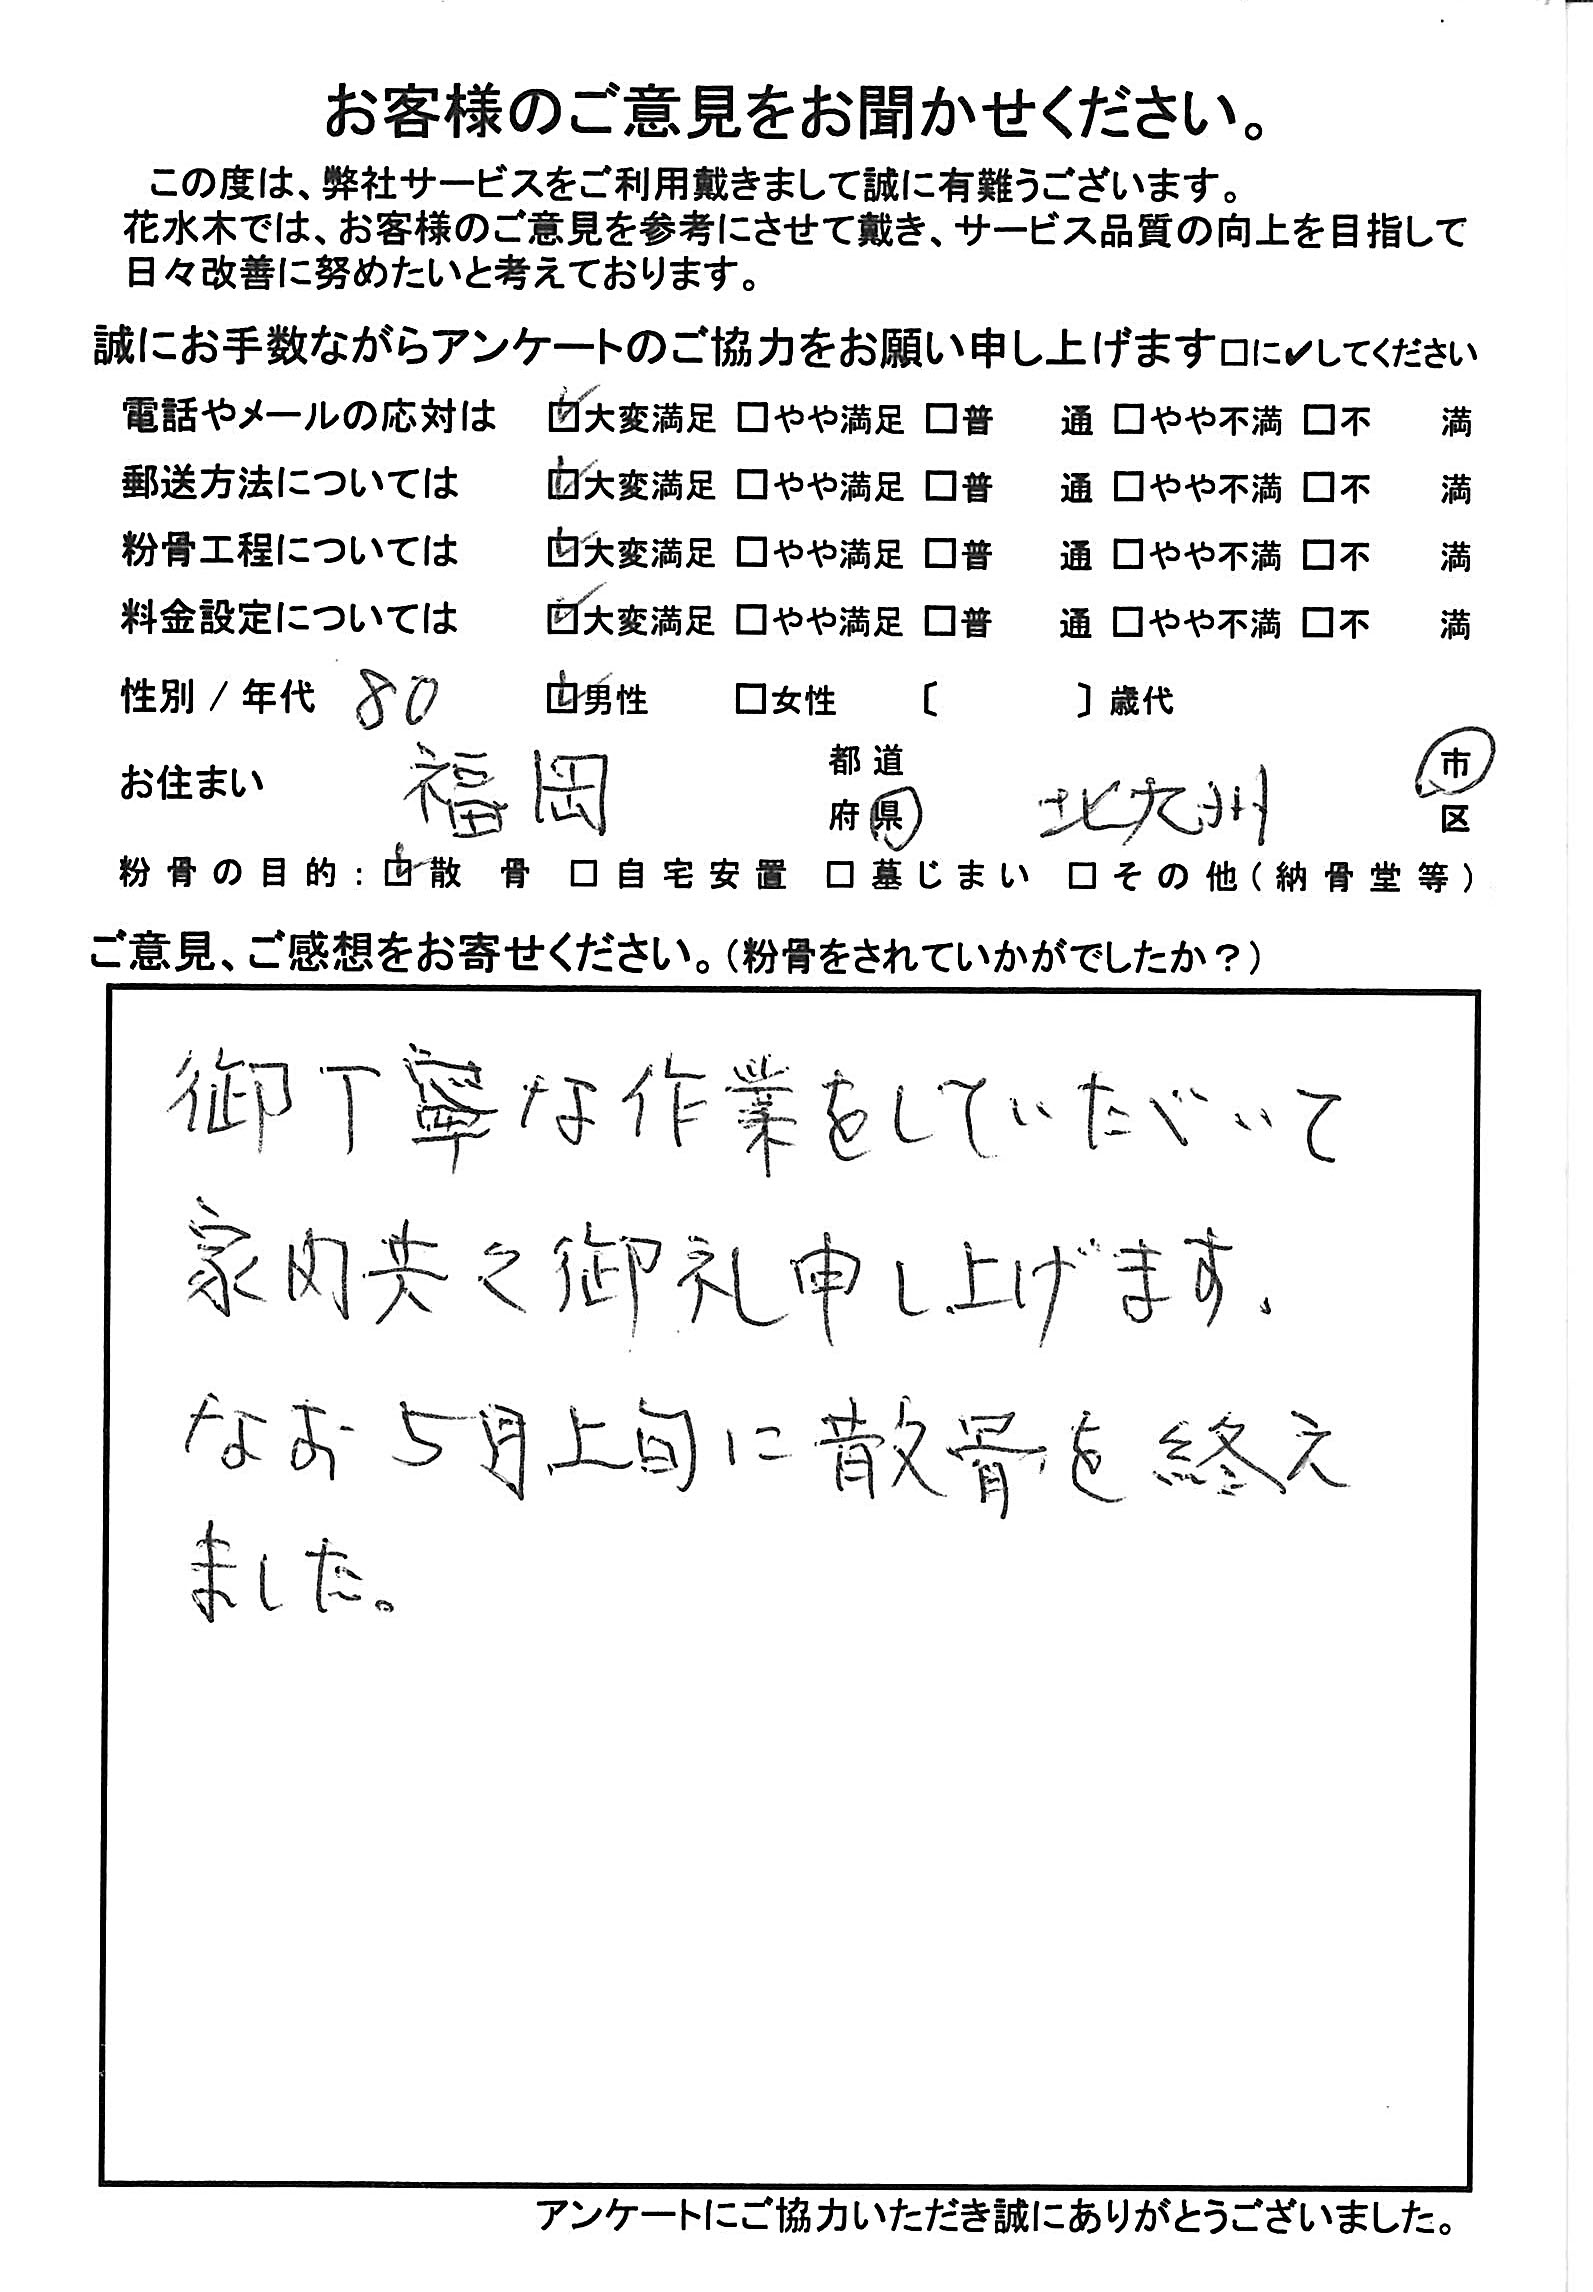 お客様のご意見をお聞かせください。
この度は、弊社サービスをご利用戴きまして誠に有難うございます。
花水木では、お客様のご意見を参考にさせて戴き、サービス品質の向上を目指して
日々改善に努めたいと考えております。
誠にお手数ながらアンケートのご協力をお願い申し上げます□に✔してください
電話やメールの応対は ☑大変満足 □やや満足 □普 通 □やや不満 □不 満
郵送方法については ☑大変満足 □やや満足 □普 通 □やや不満 □不 満
粉骨工程については ☑大変満足 □やや満足 □普 通 □やや不満 □不 満
料金設定については ☑大変満足 □やや満足 □普 通 □やや不満 □不 満
性別 / 年代 80 ☑男性 □女性 〔 〕歳代
お住まい 福岡 都道府県 北九州 市区
粉骨の目的:☑散 骨 □自宅安置 □墓じまい □その他(納骨堂等)
ご意見、ご感想をお寄せください。(粉骨をされていかがでしたか?)
御丁寧な作業をしていただいて
家内共々御礼申し上げます、
なお5月上旬に散骨を終え
ました。
アンケートにご協力いただき誠にありがとうございました。